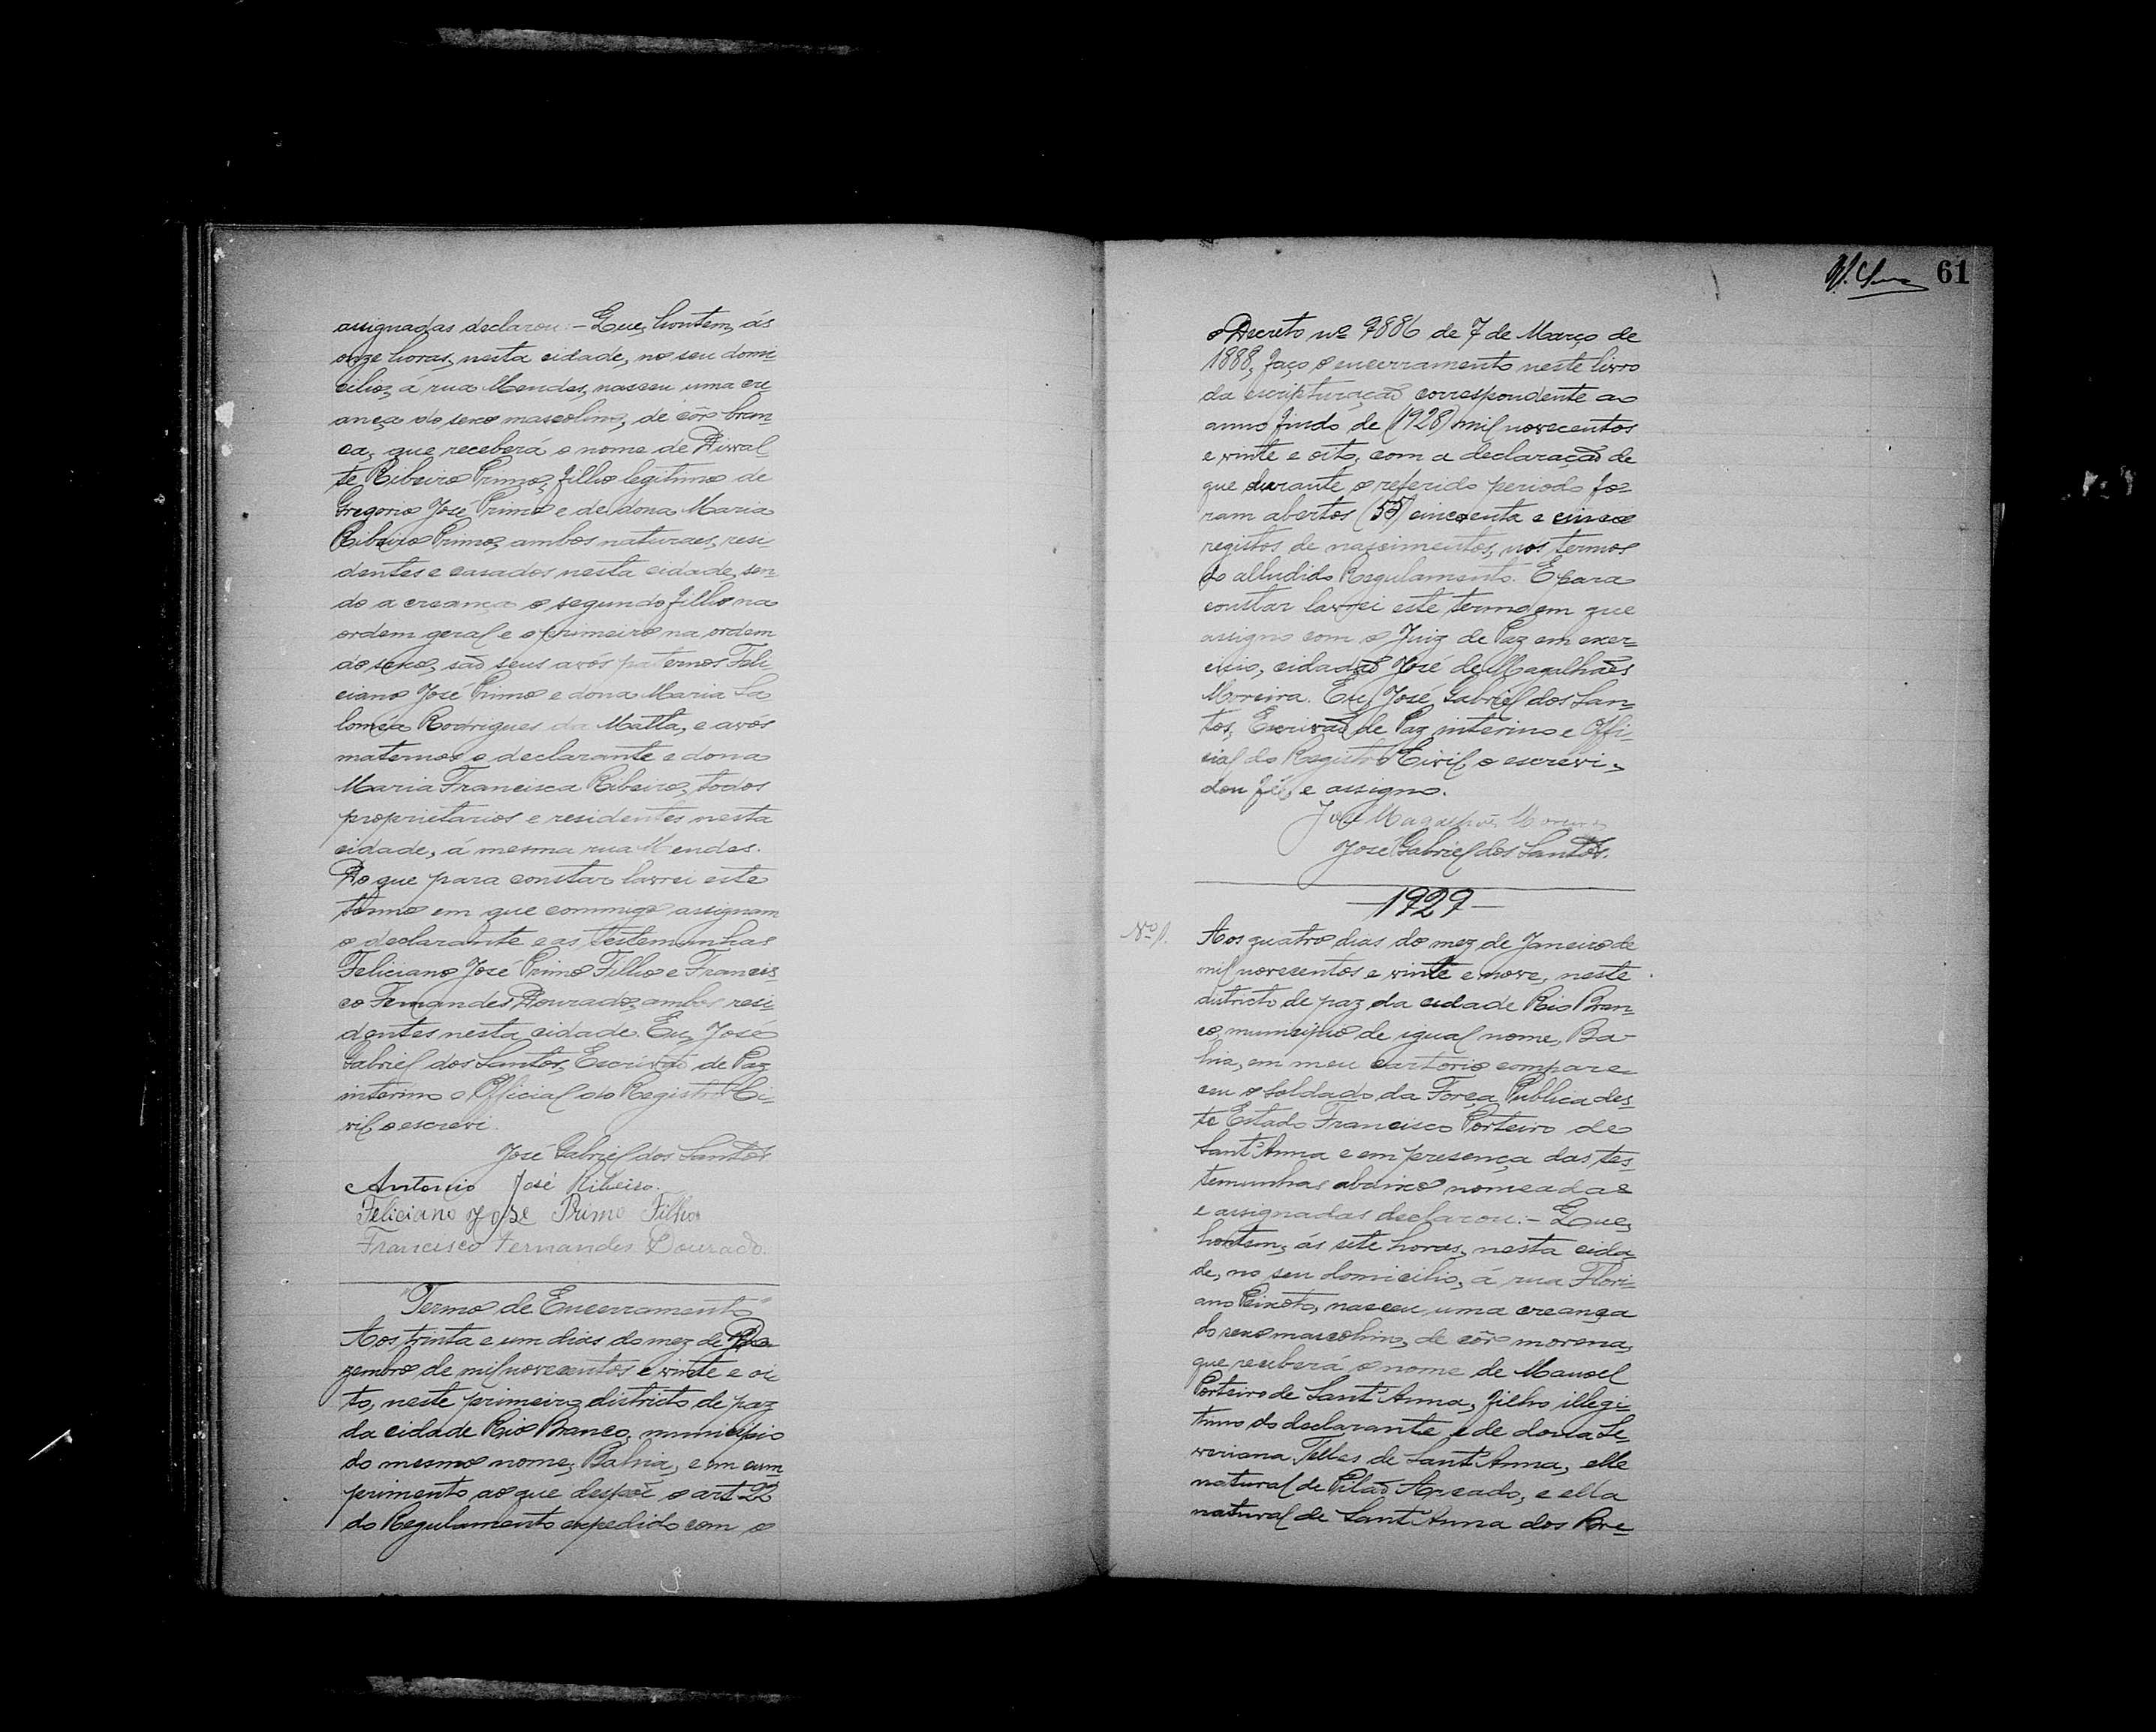 assignadas declarou:- Que, hontem, ás
onze horas, nesta cidade, no seu domi-
cilio, á rua Mendes, nasceu uma cre-
ança do sexo mascolino, de côr bran-
ca, que receberá o nome de Durval
te Ribeiro Primo, filho legitimo de
Gregorio José Primo e de dona Maria
Ribeiro Primo, ambos naturaes, resi-
dentes e casados nesta cidade, sen-
do a creança o segundo filho na
ordem geral e o primeiro na ordem
do sexo, são seus avós paternos Feli-
ciano José Primo e dona Maria Sa
loméa Rodrigues da Matta, e avós
maternos o declarante e dona
Maria Francisca Ribeiro, todos
proprietarios e residentes nesta
cidade, á mesma rua Mendes.
Do que para constar lavrei este
termo em que commigo assignam
o declarante e as testemunhas
Feliciano José Primo Filho e Francis-
co Fernandes Dourado, ambos resi-
dentes nesta cidade. Eu, José
Gabriel dos Santos, Escrivão de Paz
interino e Official do Registro Ci-
vil o escrevi.
José Gabriel dos Santos
Antonio José Ribeiro.
Feliciano José Primo Filho
Francisco Fernandes Dourado.
"Termo de Encerramento"
Aos trinta e um dias do mez de De
zembro de mil novecentos e vinte e oi
to, neste primeiro districto de paz
da cidade Rio Branco, municipio
do mesmo nome, Bahia, e em cum
primento ao que despõe o art 22
do Regulamento expedido com o
61
o Decreto nº 9886 de 7 de Março de
1888, faço o encerramento neste livro
da escripturação correspondente ao
anno findo de (1928) mil novecentos
e vinte e oito, com a declaração de
que durante o referido periodo fo-
ram abertos (55) cincoenta e cinco
registos de nascimentos, nos termos
do alludido Regulamento. E para
constar lavrei este termo em que
assigno com o Juiz de Paz em exer-
cicio, cidadão José de Magalhães
Moreira. Eu, José Gabriel dos San-
tos, Escrivão de Paz interino e Offi-
cial do Registro Civil o escrevi,
dou fé, e assigno.
José Magalhães Moreira
José Gabriel dos Santos.
-1929-
Nº 1.
Aos quatro dias do mez de Janeiro de
mil novecentos e vinte e nove, neste
districto de paz da cidade Rio Bran-
co, municipio de igual nome, Ba-
hia, em meu cartorio compare-
ceu o soldado da Força Publica des-
te Estado Francisco Porteiro de
Sant'Anna e em presença das tes-
temunhas abaixo nomeadas
e assignadas declarou:- Que,
hontem, ás sete horas, nesta cida-
de, no seu domicilio, á rua Flori-
ano Peixoto, nasceu uma creança
do sexo mascolino, de côr morena,
que receberá o nome de Manoel
Porteiro de Sant'Anna, filho illegi-
timo do declarante e de dona Se-
veriana Telles de Sant'Anna, elle
natural de Pilão Arcado, e ella
natural de Sant'Anna dos Bre-